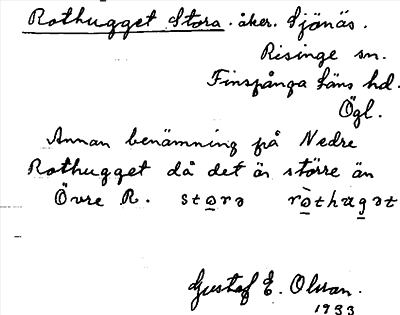 Rothugget Stora. åker. Sjönäs.
Risinge sn.
Finspånga läns hd.
Ögl.
Annan benämning på Nedre
Rothugget då det är större än
Övre R. sto̲rə rò̲thug̲ət
Gustaf E. Olsson.
1933